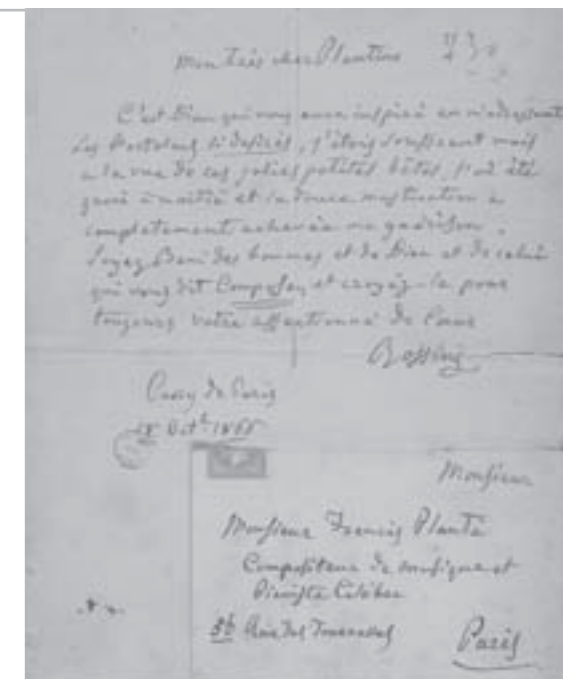 Mon très cher Plantino
C'est Dieu qui vous aura inspiré en m'adressant
Les Hortolans si desirés, j'étois souffrant mais
a la vue de ces jolies petites bêtes, j'ai été
gueri a moitié et la douce mastication a
completement achevée ma guérison.
Soyez Beni des hommes et de Dieu et de celui
qui vous dit Composez et croyez-le pour
toujours votre affectionné de Cœur
Rossini
Passy de Paris
Oct
Monsieur
Monsieur Francis Planté
Compositeur de musique et
Pianiste Célèbre
Rue des Tournelles
Paris